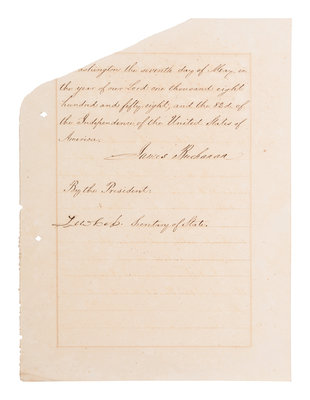 Washington the seventh day of May, in
the year of our Lord one thousand eight
hundred and fifty-eight, and the 82d. of
the Independence of the United States of
America.
James Buchanan
By the President:
Lew Cass Secretary of State.